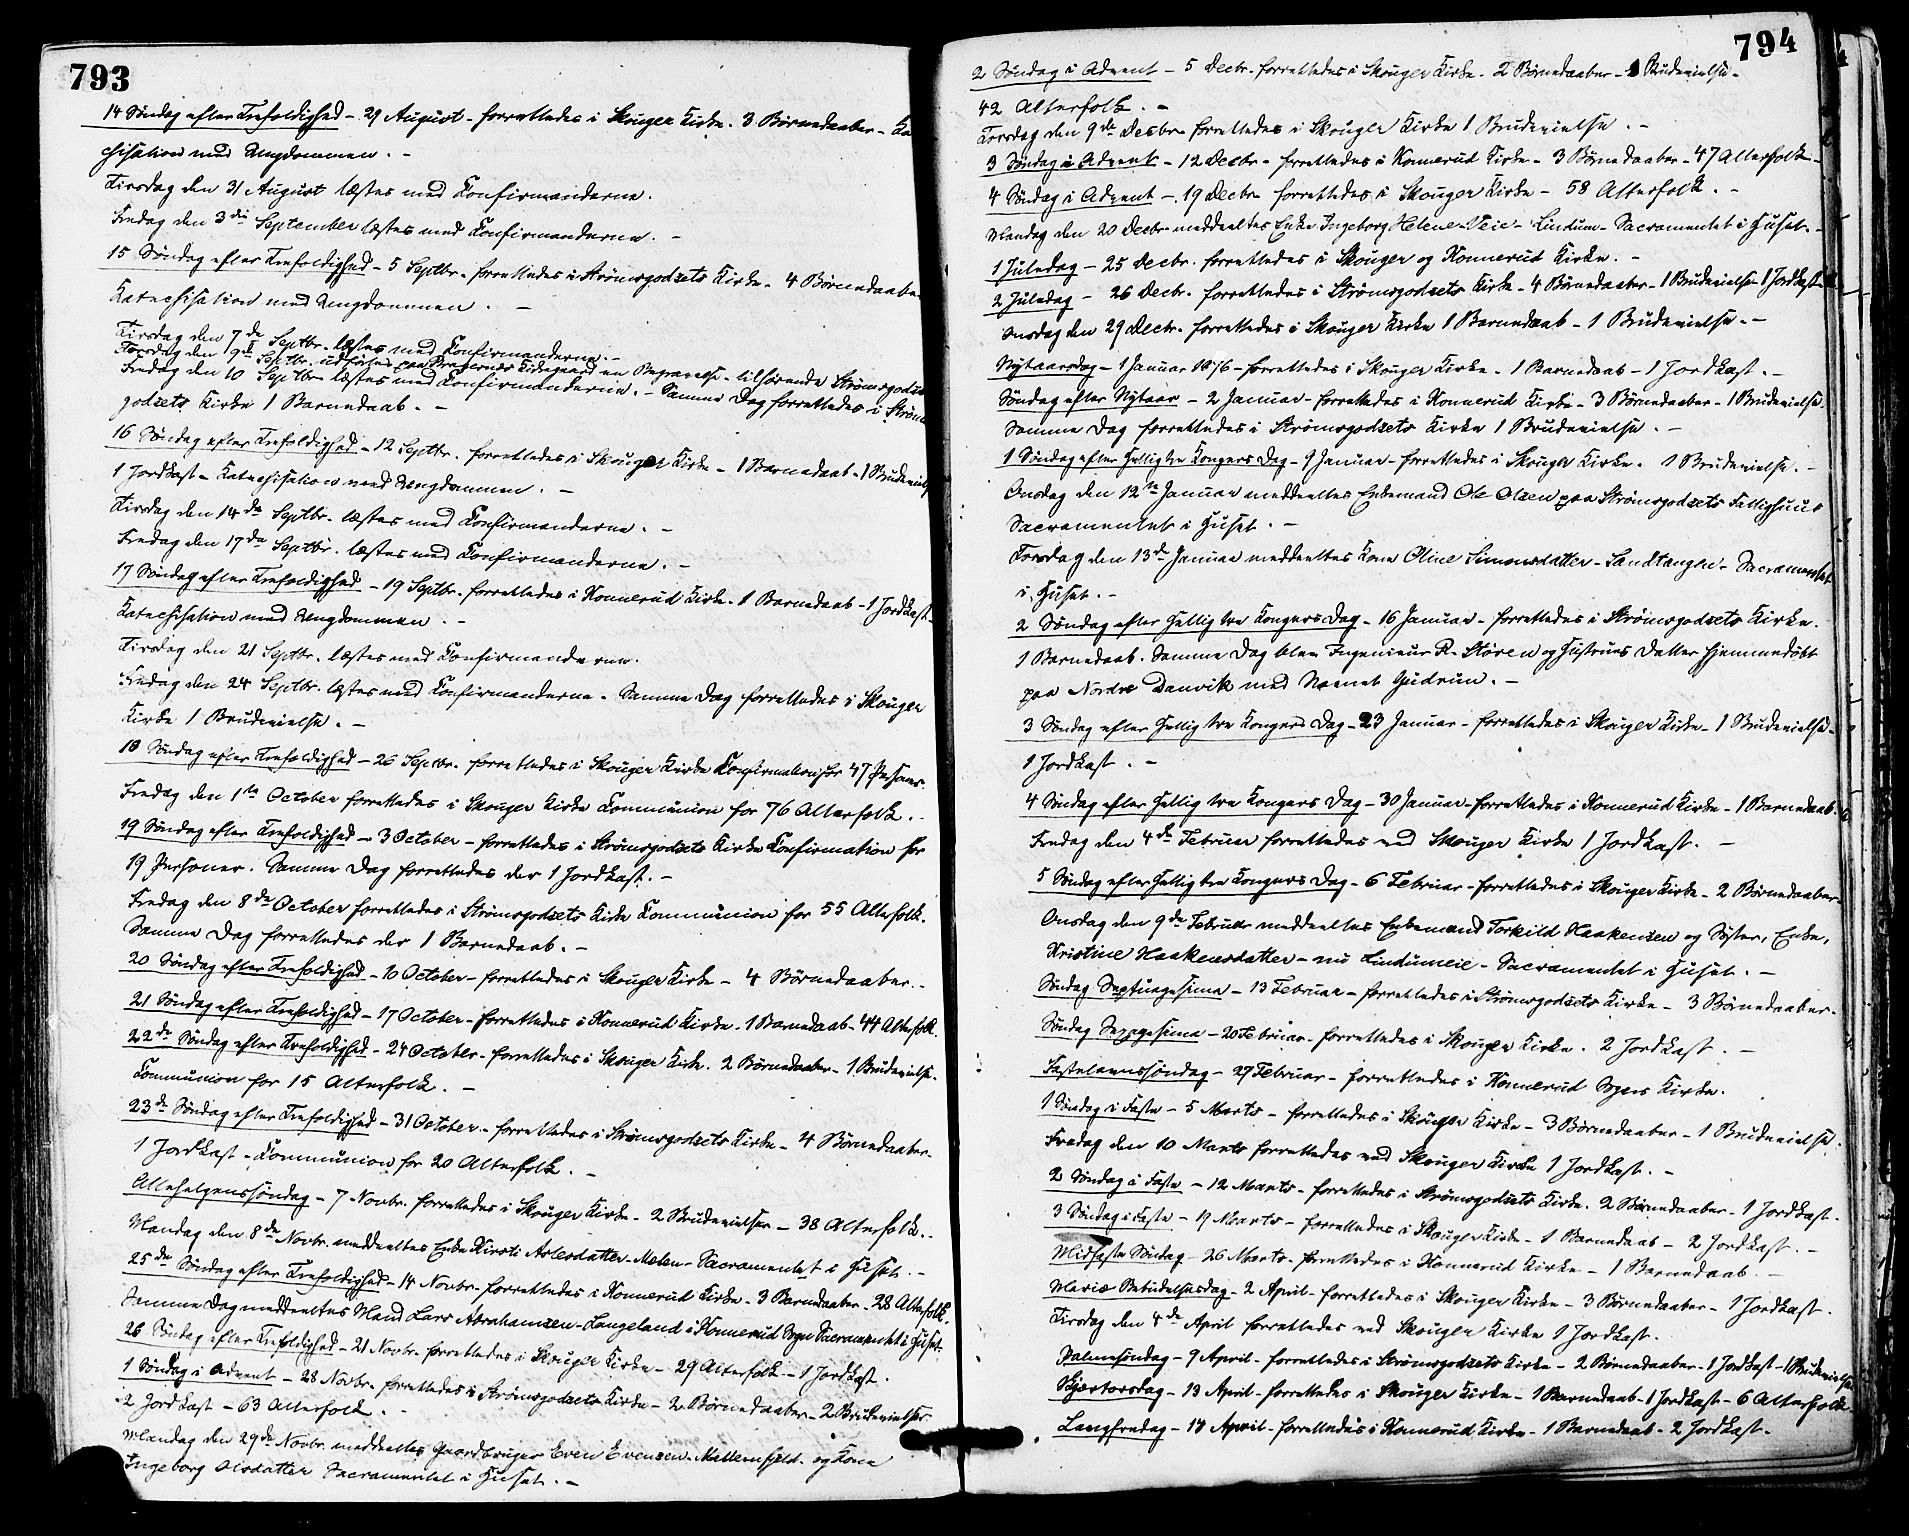 793
14 Søndag efter Trefoldighed - 29 August - forrettedes i Skouger Kirke. 3 Børnedaaber - Ka
chisation med Ungdommen. -
Tirsdag den 31 August læstes med Confirmanderne.
Fredag den 3die September læstes med Confirmanderne. -
15 Søndag efter Trefoldighed - 5 Septbr. forrettedes i Strømsgodsets Kirke - 4 Børnedaaber
Katechisation med Ungdommen. -
Tirsdag den 7de Septbr. læstes med Confirmanderne. -
Torsdag den 9de Septbr. udførtes paa Bragernes Kirkegaard en Begravelse tilhørende Strømsgodset
Fredag den 10 Septbr. læstes med Confirmanderne. - Samme Dag forrettedes i Strøms
godsets Kirke 1 Barnedaab. -
16 Søndag efter Trefoldighed - 12 Septbr. forrettedes i Skouger Kirke - 1 Barnedaab - 1 Brudevielse
1 Jordkast - Katechisation med Ungdommen. -
Tirsdag den 14de Septbr. læstes med Confirmanderne. -
Fredag den 17de Septbr. læstes med Confirmanderne. -
17 Søndag efter Trefoldighed - 19 Septbr. forrettedes i Konnerud Kirke. 1 Barnedaab - 1 Jordkast
Katechisation med Ungdommen. -
Tirsdag den 21 Septbr. læstes med Confirmanderne.
Fredag den 24 Septbr. læstes med Confirmanderne. Samme Dag forrettedes i Skouger
Kirke 1 Brudevielse. -
18 Søndag efter Trefoldighed - 26 Septbr. forrettedes i Skouger Kirke Confirmation for 47 Personer.
Fredag den 1te October forrettedes i Skouger Kirke Communion for 76 Alterfolk. -
19 Søndag efter Trefoldighed - 3 October - forrettedes i Strømsgodsets Kirke Confirmation for
19 Personer. Samme Dag forrettedes der 1 Jordkast. -
Fredag den 8de October forrettedes i Strømsgodsets Kirke Communion for 55 Alterfolk.
Samme Dag forrettedes der 1 Barnedaab. -
20 Søndag efter Trefoldighed - 10 October - forrettedes i Skouger Kirke - 4 Børnedaaber. -
21 Søndag efter Trefoldighed - 17 October - forrettedes i Konnerud Kirke. 1 Barnedaab - 44 Alterfolk.
22de Søndag efter Trefoldighed - 24 October - forrettedes i Skouger Kirke. 2 Børnedaaber - 1 Brudevielse.
Communion for 15 Alterfolk. -
23de Søndag efter Trefoldighed - 31 October - forrettedes i Strømsgodsets Kirke - 4 Børnedaaber -
1 Jordkast - Communion for 20 Alterfolk. -
Allehelgenssøndag - 7 Novbr. forrettedes i Skouger Kirke - 2 Brudevielser - 38 Alterfolk. -
Mandag den 8de Novbr. meddeeltes Enke Kirsti Aslesdatter - Melen - Sacramentet i Huset. -
25de Søndag efter Trefoldighed - 14 Novbr. forrettedes i Konnerud Kirke - 3 Børnedaaber - 28 Alterfolk.
Samme Dag meddeeltes Mand Lars Abrahamsen - Langeland i Konnerud Sogn Sacramentet i Huset.
26 Søndag efter Trefoldighed - 21 Novbr. forrettedes i Skouger Kirke - 29 Alterfolk - 1 Jordkast.
1 Søndag i Advent - 28 Novbr. forrettedes i Strømsgodsets Kirke - 2 Børnedaaber - 2 Brudevielser
2 Jordkast - 63 Alterfolk. -
Mandag den 29de Novbr. meddeeltes Gaardbruger Even Evensen - Møllersfjeld - og Kone
Ingeborg Olsdatter Sacramentet i Huset. -
794
2 Søndag i Advent - 5 Decbr. forrettedes i Skouger Kirke - 2 Børnedaaber - 1 Brudevielse -
42 Alterfolk. -
Torsdag den 9de Decbr. forrettedes i Skouger Kirke 1 Brudevielse. -
3 Søndag i Advent - 12 Decbr. forrettedes i Konnerud Kirke - 3 Børnedaaber - 47 Alterfolk -
4 Søndag i Advent - 19 Decbr. forrettedes i Skouger Kirke - 58 Alterfolk. -
Mandag den 20 Decbr. meddeeltes Enke Ingeborg Helene Veie - Lindum - Sacramentet i Huset. -
1 Juledag - 25 Decbr. forrettedes i Skouger og Konnerud Kirke. -
2 Juledag - 26 Decbr. forrettedes i Strømsgodsets Kirke - 4 Børnedaaber - 1 Brudevielse 1 Jordkast -
Onsdag den 29 Decbr. forrettedes i Skouger Kirke 1 Barnedaab - 1 Brudevielse. -
Nytaarsdag - 1 Januar 1876 - forrettedes i Skouger Kirke - 1 Barnedaab - 1 Jordkast. -
Søndag efter Nytaar - 2 Januar - forrettedes i Konnerud Kirke - 3 Børnedaaber - 1 Brudevielse.
Samme Dag forrettedes i Strømsgodsets Kirke 1 Brudevielse. -
1 Søndag efter Hellig tre Kongers Dag - 9 Januar - forrettedes i Skouger Kirke. 1 Brudevielse. -
Onsdag den 12te Januar meddeeltes Enkemand Ole Olsen paa Strømsgodsets Fattighuus
Sacramentet i Huset. -
Torsdag den 13de Januar meddeeltes Kone Oline Simonsdatter - Sandtangen - Sacramentet
i Huset. -
2 Søndag efter Hellig tre Kongers Dag - 16 Januar - forrettedes i Strømsgodsets Kirke.
1 Barnedaab. Samme Dag blev Ingenieur R. Støren og Hustrues Datter hjemmedøbt
paa Nordre Danvik med Navnet Gudrun. -
3 Søndag efter Hellig tre Kongers Dag - 23 Januar - forrettedes i Skouger Kirke - 1 Brudevielse -
1 Jordkast. -
4 Søndag efter Hellig tre Kongers Dag - 30 Januar - forrettedes i Konnerud Kirke - 1 Barnedaab.
Fredag den 4de Februar forrettedes ved Skouger Kirke 1 Jordkast. -
5 Søndag efter Hellig tre Kongers Dag - 6 Februar - forrettedes i Skouger Kirke - 2 Børnedaaber.
Onsdag den 9de Februar meddeeltes Enkemand Torkild Haakensen og Søster, Enke,
Kristine Haakensdatter - nu Lindumeie - Sacramentet i Huset. -
Søndag Septuagesima - 13 Februar - forrettedes i Strømsgodsets Kirke - 3 Børnedaaber.
Søndag Sexagesima - 20 Februar - forrettedes i Skouger Kirke. 2 Jordkast. -
Fastelavnssøndag - 27 Februar - forrettedes i Konnerud Sogns Kirke.
1 Søndag i Faste - 5 Marts - forrettedes i Skouger Kirke - 3 Børnedaaber - 1 Brudevielse.
Fredag den 10 Marts forrettedes ved Skouger Kirke 1 Jordkast. -
2 Søndag i Faste - 12 Marts - forrettedes i Strømsgodsets Kirke. 2 Børnedaaber - 1 Jordkast.
3 Søndag i Faste - 19 Marts - forrettedes i Skouger Kirke - 1 Barnedaab - 2 Jordkast. -
Midfaste Søndag - 26 Marts - forrettedes i Konnerud Kirke - 1 Barnedaab. -
Mariæ Bebudelsesdag - 2 April - forrettedes i Skouger Kirke - 3 Børnedaaber - 1 Jordkast.
Tirsdag den 4de April forrettedes ved Skouger Kirke 1 Jordkast.
Palmesøndag - 9 April - forrettedes i Strømsgodsets Kirke - 2 Børnedaaber - 1 Jordkast - 1 Brudevielse
Skjærtorsdag - 13 April - forrettedes i Skouger Kirke - 1 Barnedaab - 1 Jordkast - 6 Alterfolk.
Langfredag - 14 April - forrettedes i Konnerud Kirke - 1 Barnedaab - 2 Jordkast -